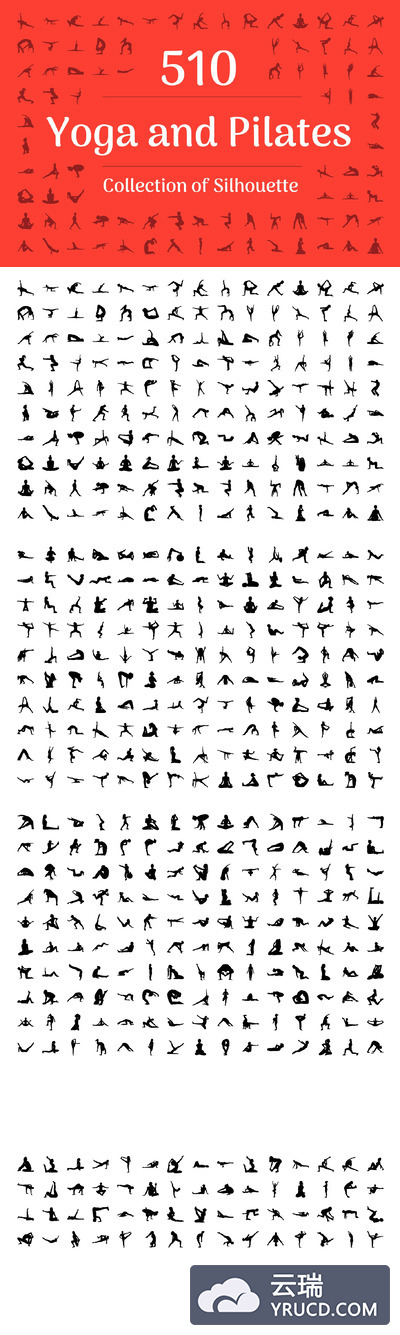 510
Yoga and Pilates
Collection of Silhouette
云瑞
YRUCD.COM